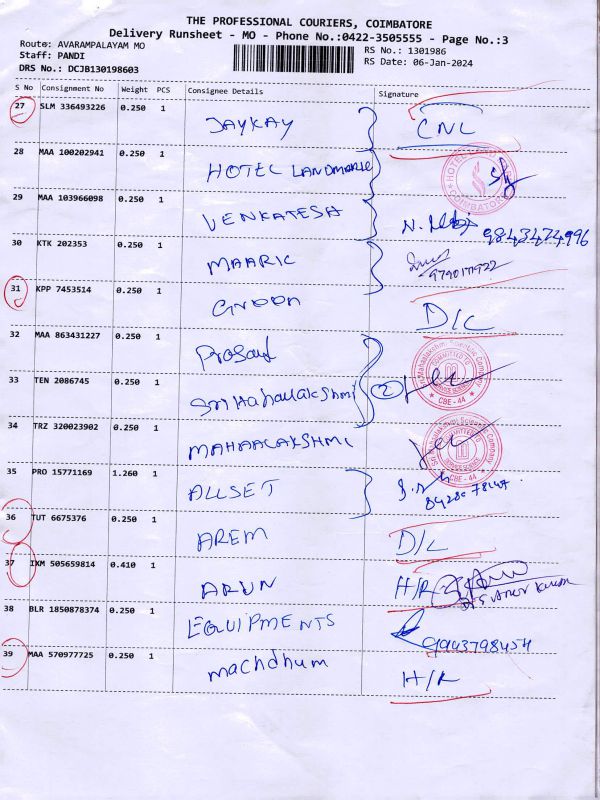 THE PROFESSIONAL COURIERS, COIMBATORE
Delivery Runsheet - MO - Phone No.:0422-3505555 - Page No.:3
Route: AVARAMPALAYAM MO
Staff: PANDI
DRS No.: DCJB130198603
RS No.: 1301986
RS Date: 06-Jan-2024
S No Consignment No Weight PCS Consignee Details Signature
27 SLM 336493226 0.250 1 JAYKAY CNL
28 MAA 100202941 0.250 1 HOTEL LANDMARK
HOTEL
COIMBATORE
29 MAA 103966098 0.250 1 VENKATESH N. 9843474996
30 KTK 202353 0.250 1 MAARIC
31 KPP 7453514 0.250 1 GROON D/C
32 MAA 863431227 0.250 1 Prosand
33 TEN 2086745 0.250 1 SRI Mahalakshmi 2
Sri Mahalakshmi Scientific Company
CBE - 44
34 TRZ 320023902 0.250 1 MAHAALAKSHMI
Sri Mahalakshmi Scientific Company
CBE - 44
35 PRO 15771169 1.260 1 ALLSET
36 TUT 6675376 0.250 1 AREM D/L
37 IKM 505659814 0.410 1 ARUN H/R
38 BLR 1850878374 0.250 1 EQUIPMENTS 9943798454
39 MAA 570977725 0.250 1 machdhum H/R